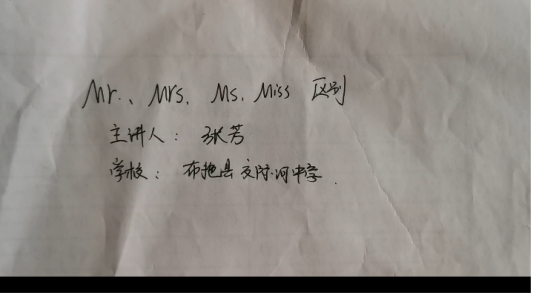 Mr.、Mrs. Ms. Miss 区别
主讲人： 张芳
学校： 布拖县交际河中学.